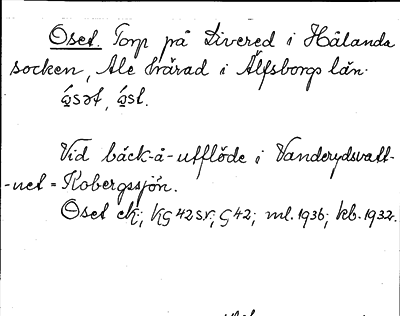 Oset. Torp på Livered i Hålanda
socken, Ale härad i Älfsborgs län.
ɷ́sət, ɷ́st.
Vid bäck-å-utflöde i Vanderydsvatt-
-net = Kobergssjön.
Oset ek; KG 42 sv; G 42; ml. 1936; kb. 1932.